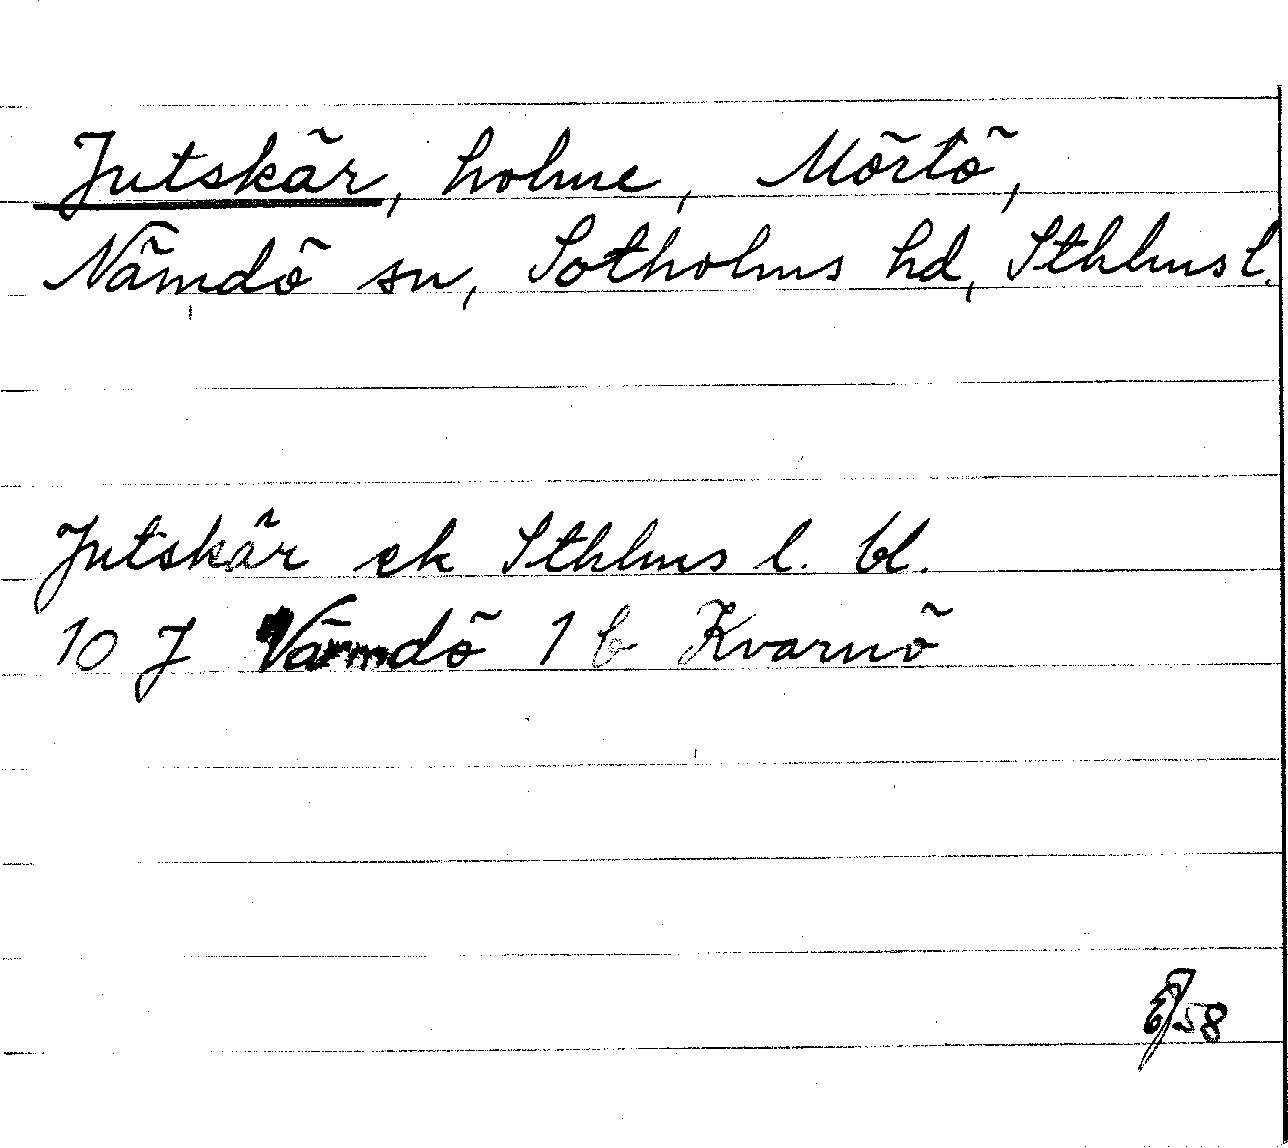 Jutskär, holme, Mörtö,
Nämdö sn, Sotholms hd, Sthlms l.
Jutskär ek Sthlms l. bl.
10 J Värmdö 1 b Kvarnö
58